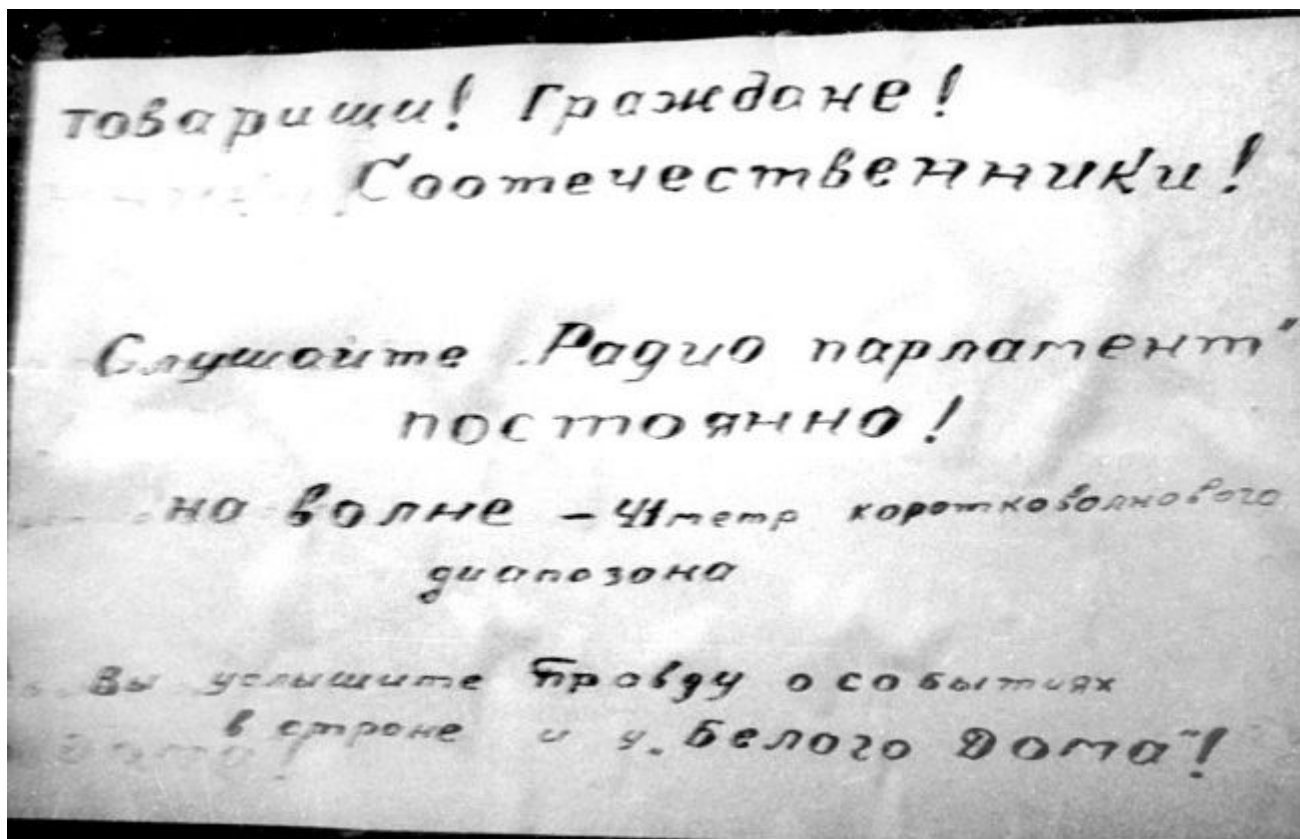 товарищи! Граждане!
Соотечественники!
Слушайте „Радио парламент"
постоянно!
на волне – 41 метр коротковолнового
диапозона
Вы услышите Правду о событиях
в стране и у „Белого Дома"!